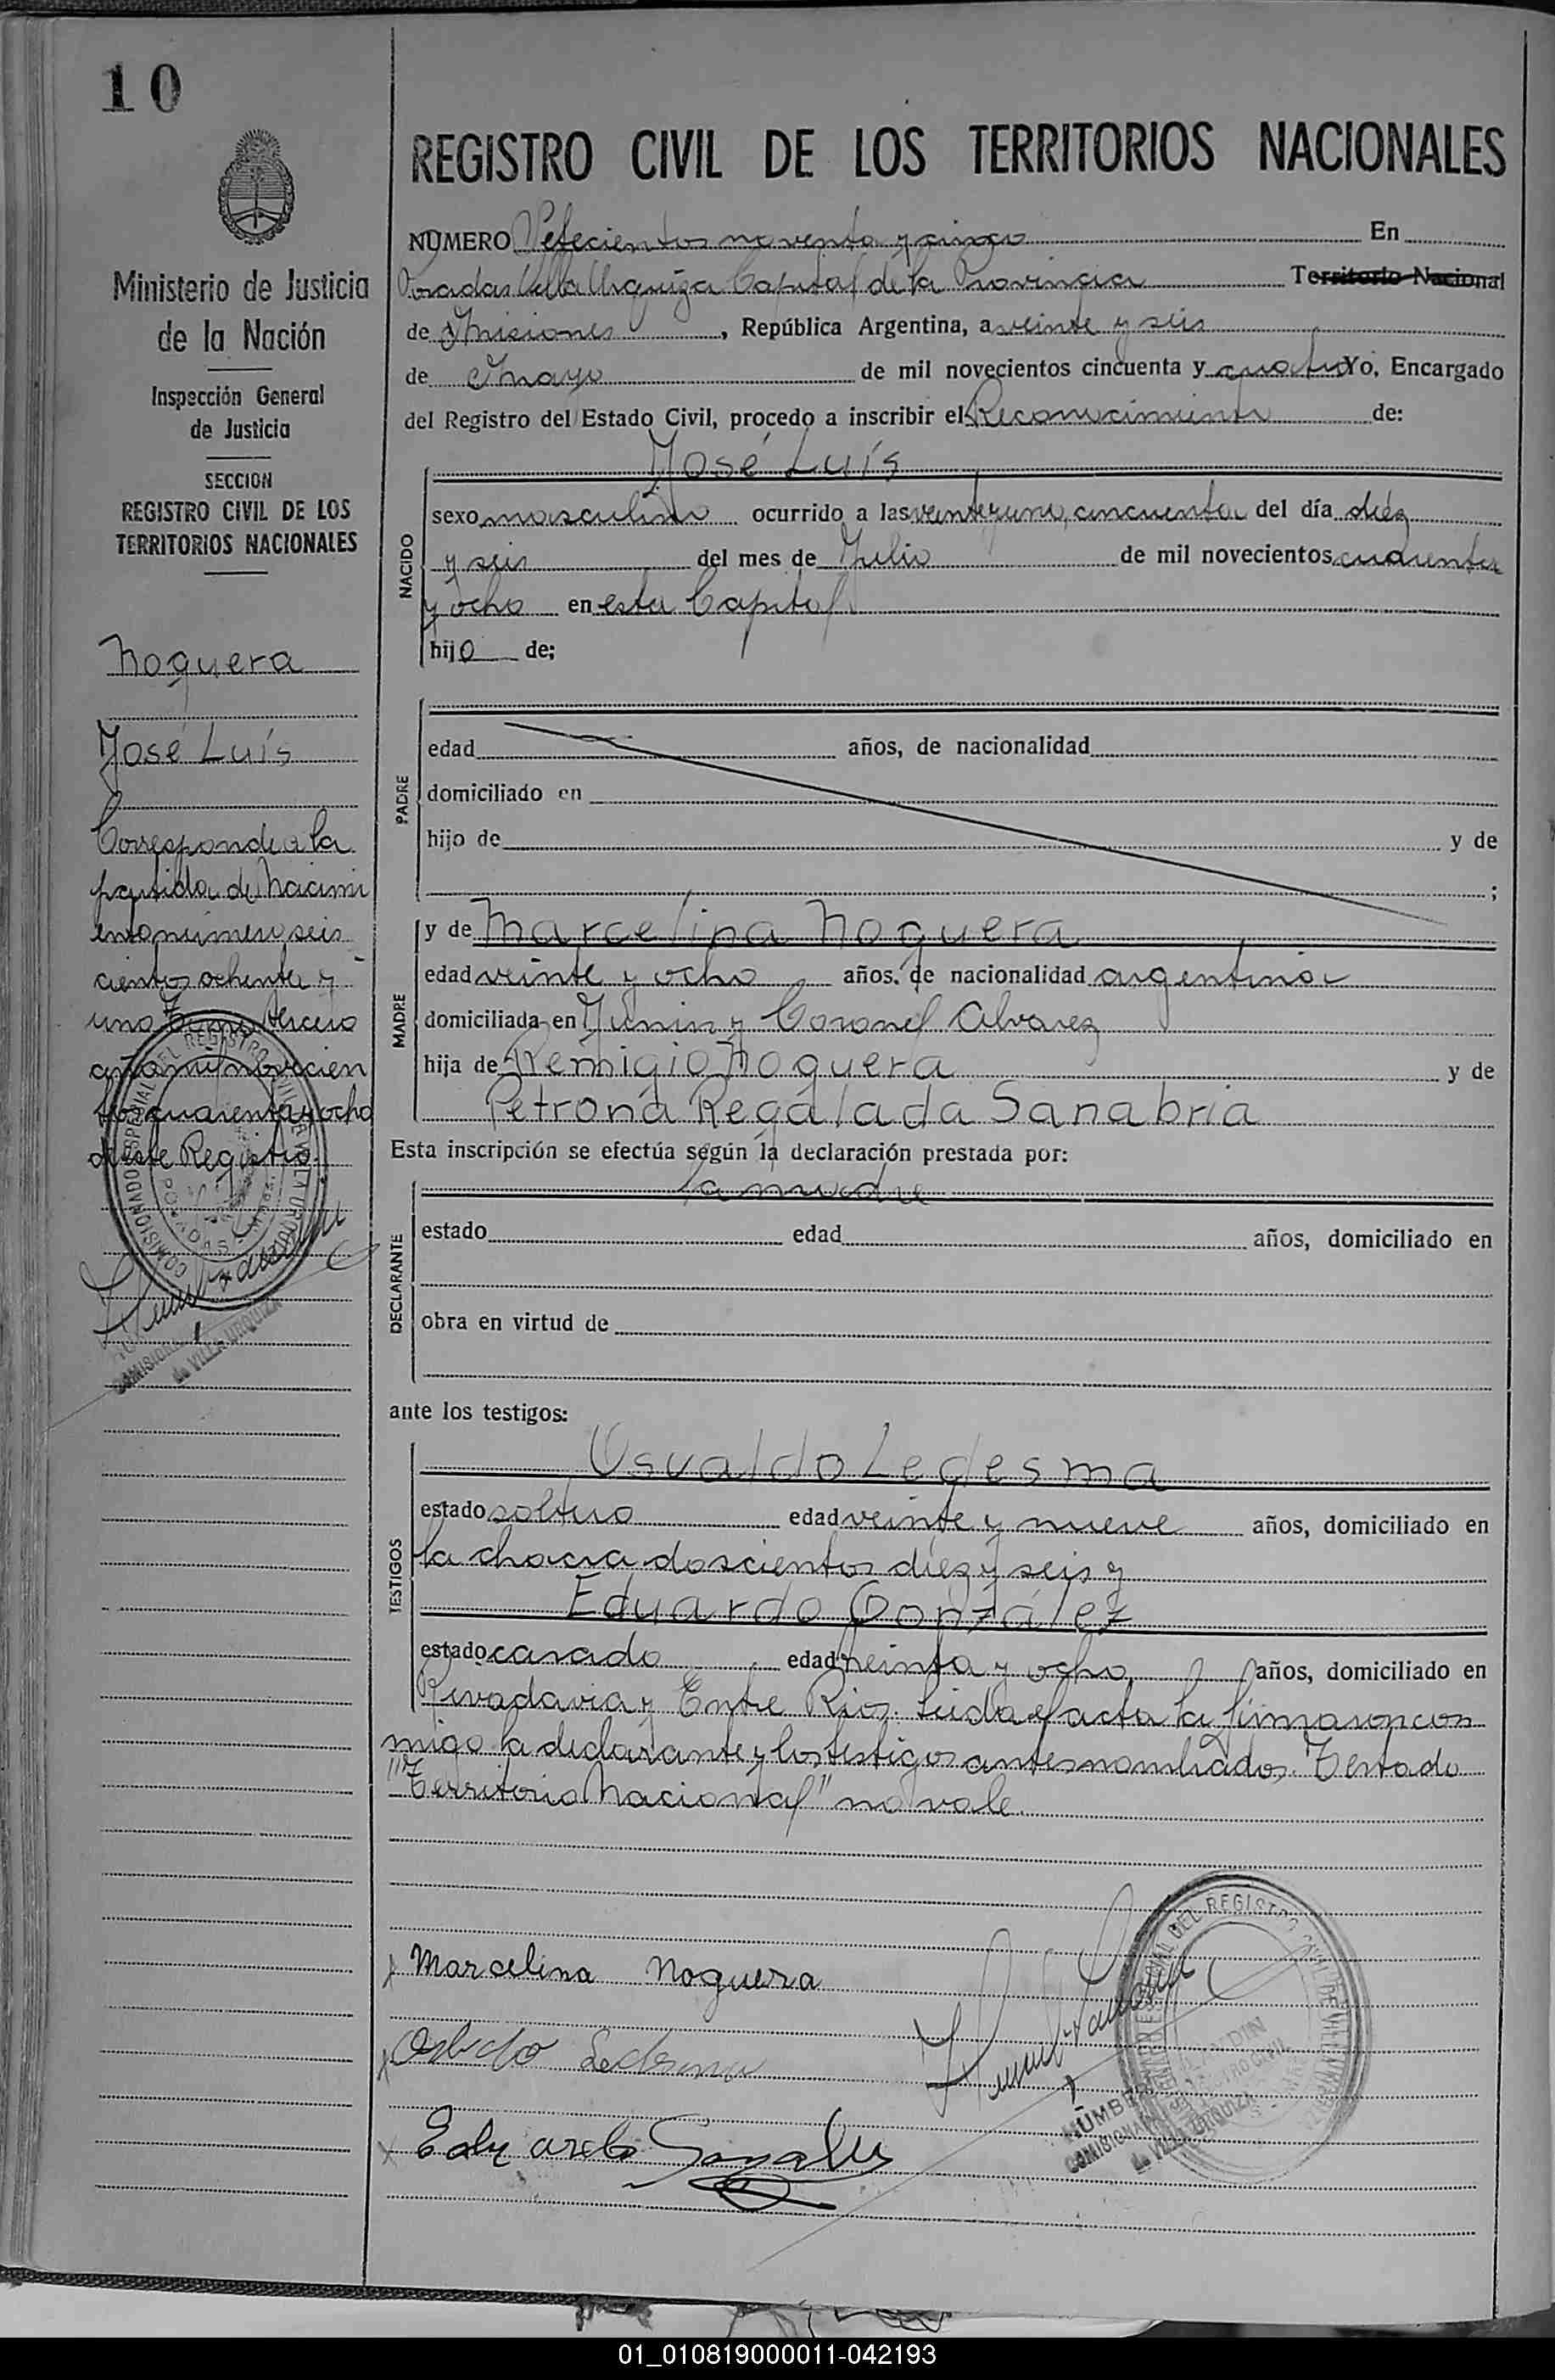 10
REGISTRO CIVIL DE LOS TERRITORIOS NACIONALES
NUMERO Setecientos noventa y cinco En
Posadas Villa Urquiza Capital de la Provincia Territorio Nacional
de Misiones, República Argentina, a veinte y seis
de Mayo de mil novecientos cincuenta y cuatro Yo, Encargado
del Registro del Estado Civil, procedo a inscribir el Reconocimiento de:
José Luís
NACIDO
sexo masculino ocurrido a las veinteyuna, cincuenta del día diéz
y seis del mes de Julio de mil novecientos cuarenta
y ocho en esta Capital
hijo de;
PADRE
edad años, de nacionalidad
domiciliado en
hijo de y de
;
MADRE
y de Marcelina Noguera
edad veinte y ocho años, de nacionalidad argentina
domiciliada en Junin y Coronel Alvarez
hija de Remigio Noguera y de
Petrona Regalada Sanabria
Esta inscripción se efectúa según la declaración prestada por:
la madre
DECLARANTE
estado edad años, domiciliado en
obra en virtud de
ante los testigos:
TESTIGOS
Osvaldo Ledesma
estado soltero edad veinte y nueve años, domiciliado en
la chacra doscientos diéz y seis y
Eduardo González
estado casado edad treinta y ocho años, domiciliado en
Rivadavia y Entre Rios. Leida el acta la firmaron con
migo la declarante y los testigos antes nombrados. Testado
"Territorio Nacional" no vale.
Marcelina Noguera
Eduardo Gonzales
COMISIONADO
de VILLA URQUIZA
Ministerio de Justicia
de la Nación
Inspección General
de Justicia
SECCION
REGISTRO CIVIL DE LOS
TERRITORIOS NACIONALES
Noguera
José Luís
Corresponde a la
partida de Nacimi
ento número seis
cientos ochenta y
uno Tomo tercero
año mil novecien
tos cuarenta y ocho
de este Registro.
COMISIONADO ESPECIAL DEL REGISTRO CIVIL DE VILLA URQUIZA
POSADAS
COMISIONADO
de VILLA URQUIZA
01_010819000011-042193